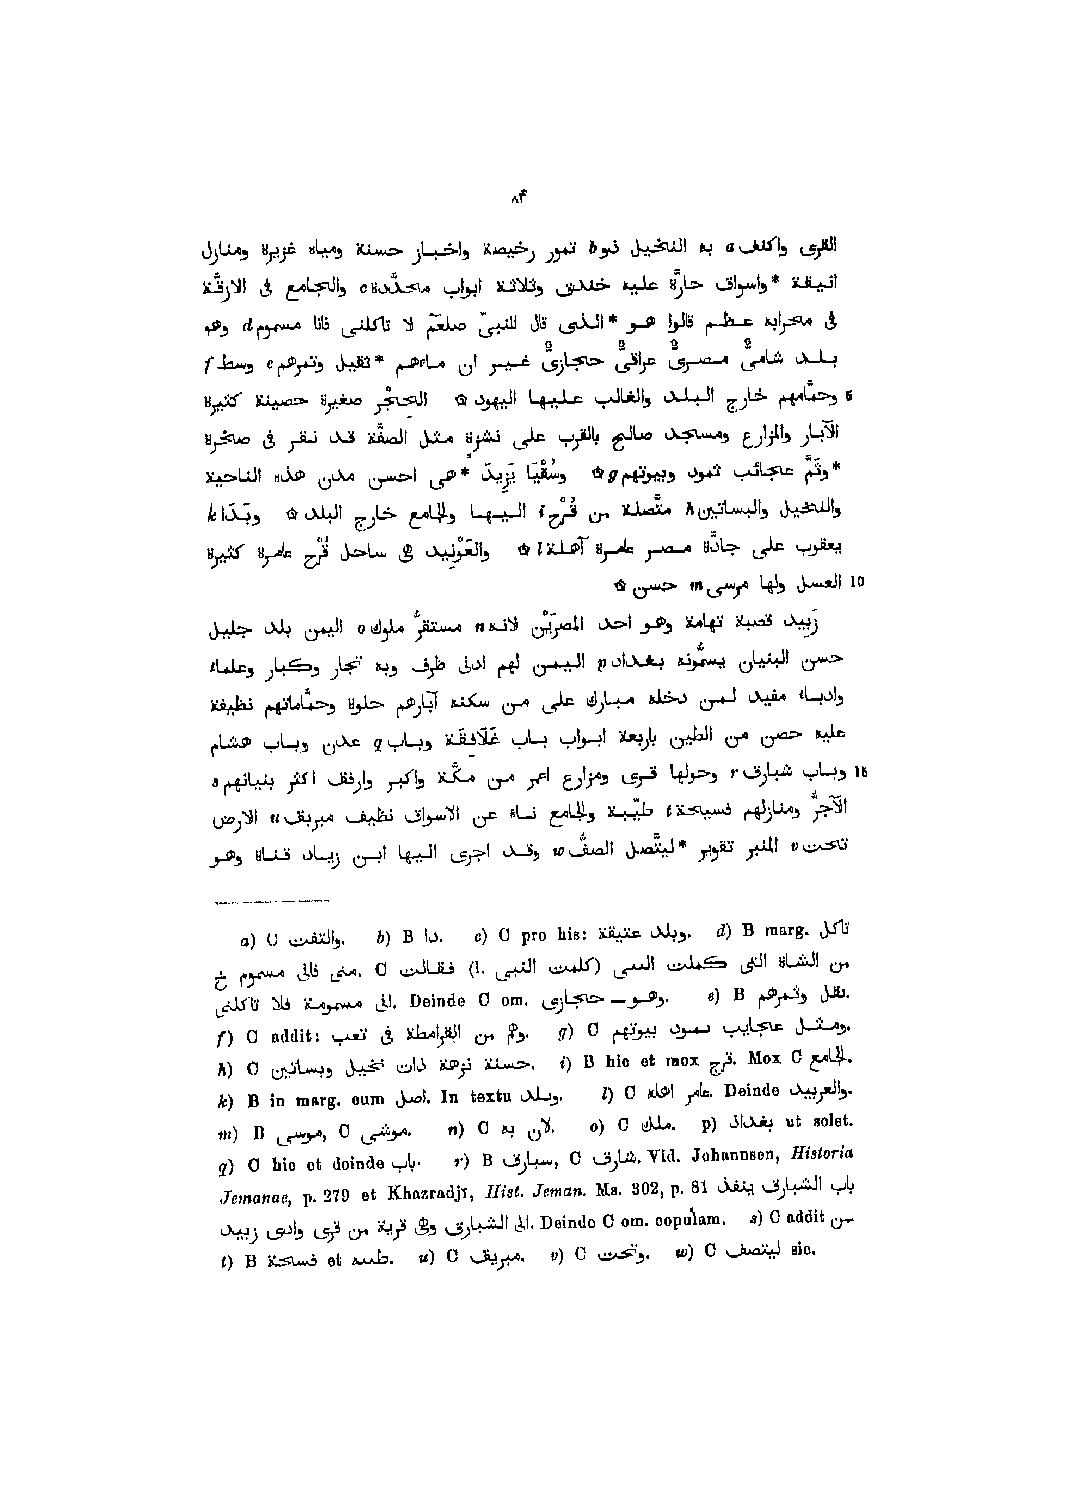 ٨٤
القرى واكنف a به النخيل ذو b تمور رخيصة واخباز حسنة ومياه غزيرة ومنازل
انيقة *واسواق حارّة عليه خندق وثلاثة ابواب محدّدة c والجامع فى الازقّة
فى محرابه عظم قالوا هو *الذى قال للنبىّ صلعم لا تاكلنى فانا مسموم d وهو
بلد شامىٌّ مصرىٌّ عراقىٌّ حجازىٌّ غير ان ماءهم *ثقيل وتمرهم e وسط f
5 وحمّامهم خارج البلد والغالب عليها اليهود ۞ الحِجْر صغيرة حصينة كثيرة
الآبار والمزارع ومسجد صالح بالقرب على نشزة مثل الصفّة قد نقر فى صخرة
*وثَمَّ عجائب ثمود وبيوتهم g ۞ وسُقْيَا يَزِيدَ *هى احسن مدن هذه الناحية
والنخيل والبساتين h متّصلة من قُرْح i اليها والجامع خارج البلد ۞ وبَدَا k
يعقوب على جادّة مصر عامرة آهلة l ۞ والعَوْنِيد هى ساحل قُرْح عامرة كثيرة
10 العسل ولها مرسى m حسن ۞
زَبِيد قصبة تهامة وهو احد المصرَيْن لانه n مستقرّ ملوك o اليمن بلد جليل
حسن البنيان يسمّونه بغداد p اليمن لهم ادنى ظرف وبه تجار وكبار وعلماء
وادباء مفيد لمن دخله مبارك على من سكنه آبارهم حلوة وحمّاماتهم نظيفة
عليه حصن من الطين باربعة ابواب باب غَلَافِقَة وباب q عدن وباب هشام
15 وباب شبارق r وحولها قرى ومزارع اعمر من مكّة واكبر وارفق اكثر بنيانهم s
الآجرّ ومنازلهم فسيحة t طيّبة والجامع ناء عن الاسواق نظيف مبريق u الارض
تحت v المنبر تقوير *ليتّصل الصفّ w وقد اجرى اليها ابن زياد قناة وهو
a) C والتفت. b) B دا. c) C pro his: وبلد عتيقة. d) B marg. تاكل
من الشاة التى كملت النبى (l. كلمت النبى) فقالت C .منى فانى مسموم خ
انى مسمومة فلا تاكلنى. Deinde C om. وهو — حجازى. e) B ثقل وثمرهم.
f) C addit: وهم من القرامطة فى تعب. g) C ومثل عجايب ثمود بيوتهم.
h) C حسنة نزهة ذات نخيل وبساتين. i) B hic et mox قرج. Mox C الجامع.
k) B in marg. cum اصل. In textu وبلد. l) C عامر اهله. Deinde والعربيد.
m) B موسى, C موشى. n) C لان به. o) C ملك. p) بغداذ ut solet.
q) C hic et deinde باب. r) B سبارق, C شارق. Vid. Johannsen, Historia
Jemanae, p. 279 et Khazradjī, Hist. Jeman. Ms. 302, p. 81 باب الشبارق ينفذ
الى الشبارق وهى قرية من قرى وادى زبيد. Deinde C om. copulam. s) C addit من
t) B فساحة et طيبه. u) C مبريق. v) C وتحت. w) C ليتصف sic.